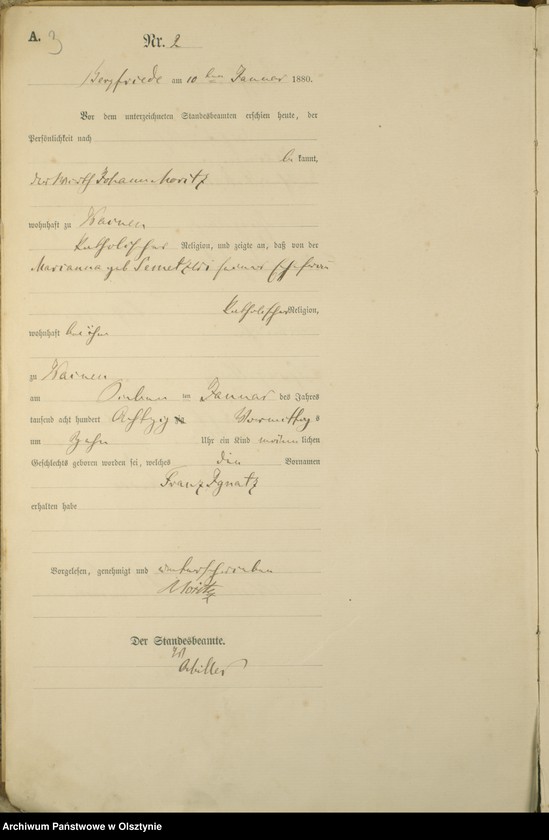 A. 3
Nr. 2
Bergfriede am 10 ten Januar 1880.
Vor dem unterzeichneten Standesbeamten erschien heute, der
Persönlichkeit nach
be kannt,
der Wirth Johann Moritz
wohnhaft zu
katholischer Religion, und zeigte an, daß von der
Marianna geb seiner Ehefrau
katholischer Religion,
wohnhaft bei ihm
zu
am Sieben ten Januar des Jahres
tausend acht hundert Achtzig Vormittag s
um Zehn Uhr ein Kind männ lichen
Geschlechts geboren worden sei, welches die Vornamen
Franz Ignatz
erhalten habe
Vorgelesen, genehmigt und unterschrieben
Moritz
Der Standesbeamte.
Archiwum Państwowe w Olsztynie